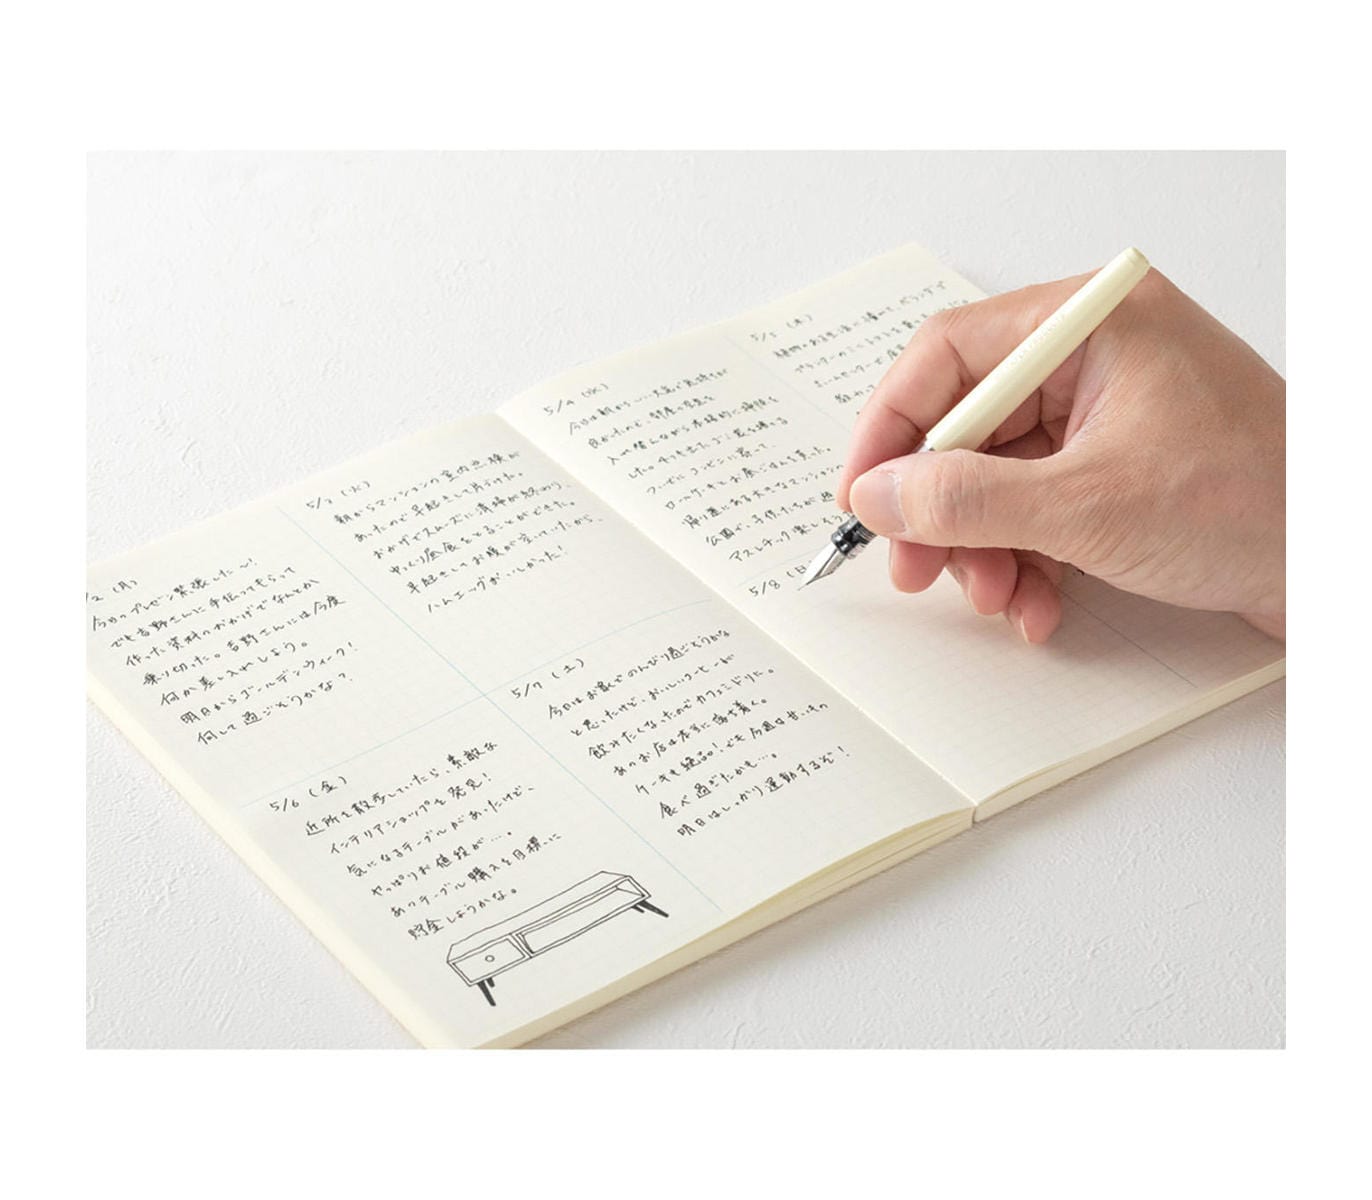 /2 (月)
今日のプレゼン緊張した〜!
でも吉野さんに手伝ってもらって
作った資料のおかげでなんとか
乗り切った。吉野さんには今度
何か差し入れしよう。
明日からゴールデンウィーク!
何して過ごそうかな?
5/3 (火)
朝からマンションの室内点検が
あったので早起きして片づけた。
おかげでスムーズに清掃が終わり、
ゆっくり昼食をとることができた。
早起きしてお腹が空いていたから、
ハムエッグがおいしかった!
5/6 (金)
近所を散歩していたら、素敵な
インテリアショップを発見!
気になるテーブルがあったけど、
やっぱりお値段が…。
あのテーブル購入を目標に
貯金しようかな。
5/7 (土)
今日はお家でのんびり過ごそうかな
と思ったけど、おいしいコーヒーが
飲みたくなったのでカフェミドリに。
あのお店は本当に落ち着く。
ケーキも絶品!でも今週は甘いもの
食べ過ぎたかも…。
明日はしっかり運動するぞ!
5/4 (水)
今日は朝から いい天気で気持ちが
良かったので、部屋の空気を
入れ替えながら本格的に掃除を
した。
ついでにコンビニに寄って、
ロールケーキとお昼ごはんを買った。
帰り道にある大きなマンションの
公園で、子供たちが
アスレチック楽しそう
5/5 (木)
植物のある生活に憧れて、ベランダで
プランターのミニトマトを
ホームセンターで
5/8 (日